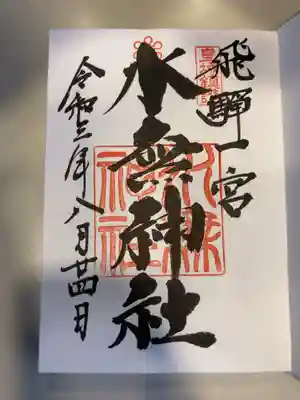 飛騨一宮
水無神社
令和三年八月廿四日